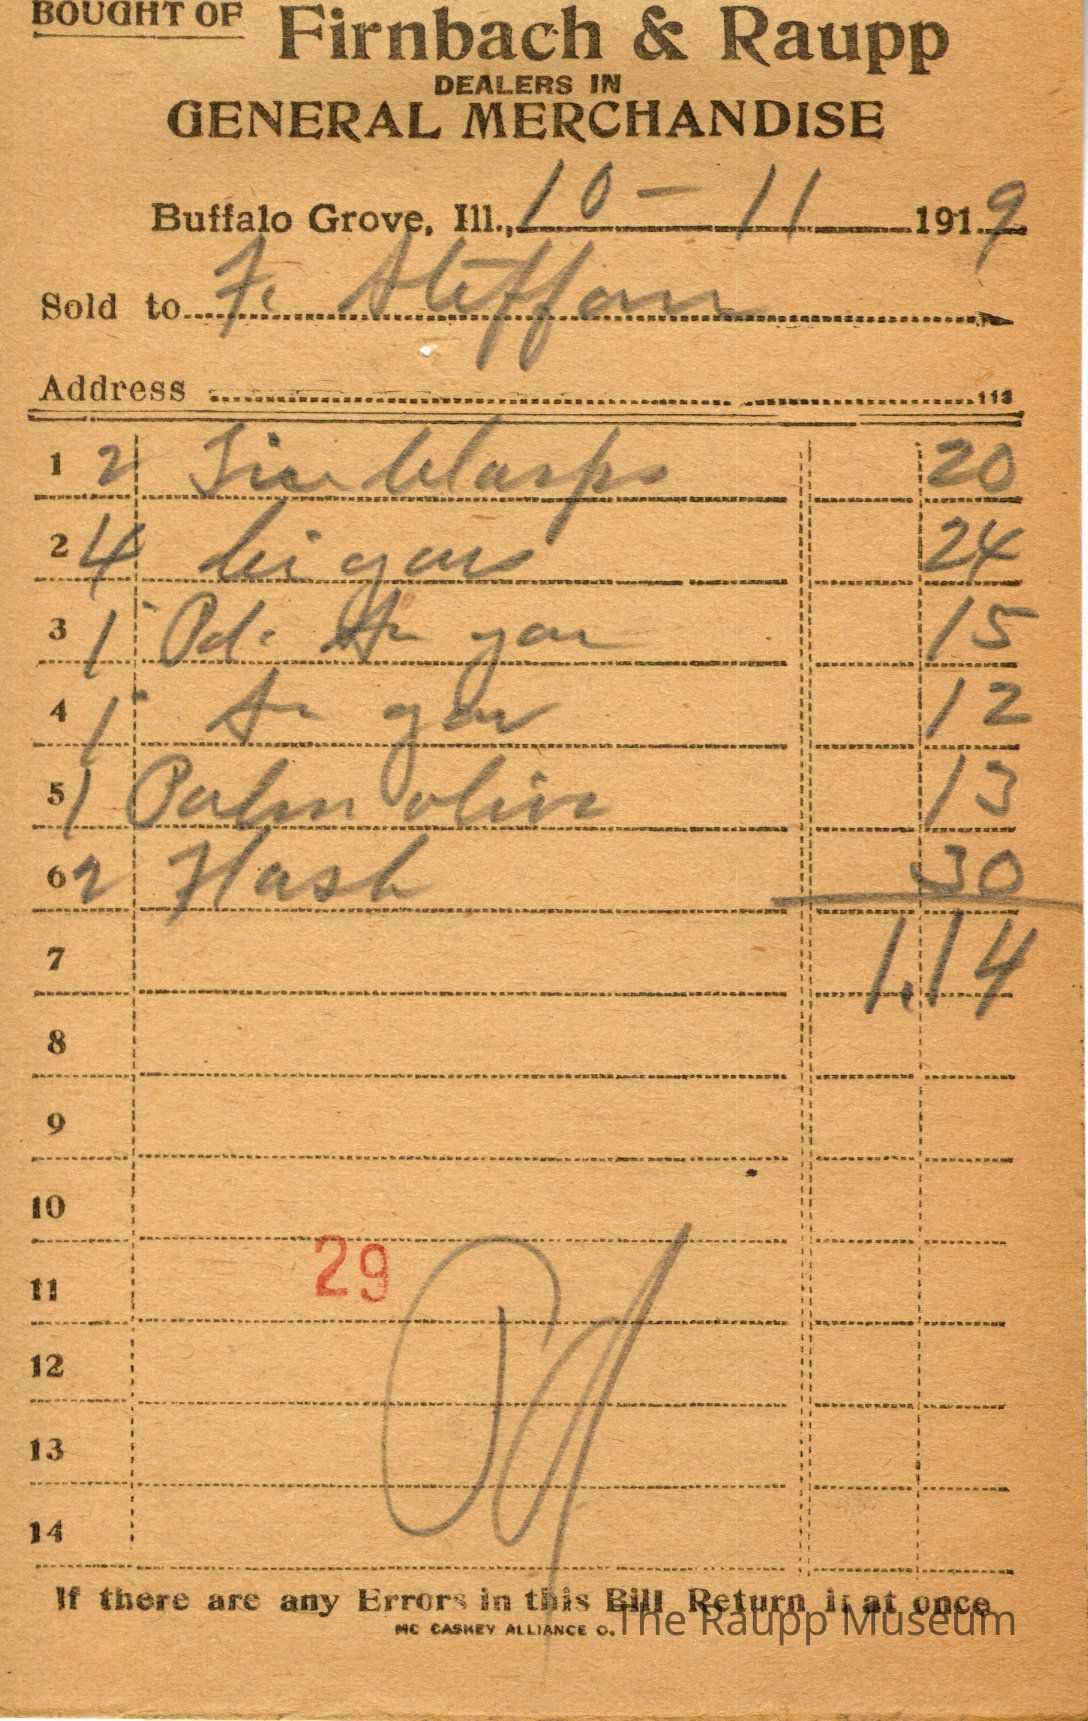 BOUGHT OF Firnbach & Raupp
DEALERS IN
GENERAL MERCHANDISE
Buffalo Grove, Ill., 10 - 11 1919
Sold to F. Steffan
Address 113
1 2 20
2 4 Cigars 24
3 1 Pd. 15
4 1 12
5 1 Palm olive 13
6 2 Hash 30
7 1.14
8
9
10
29
11
12
13
14
If there are any Errors in this Bill Return it at once
MC CASKEY ALLIANCE O.
The Raupp Museum